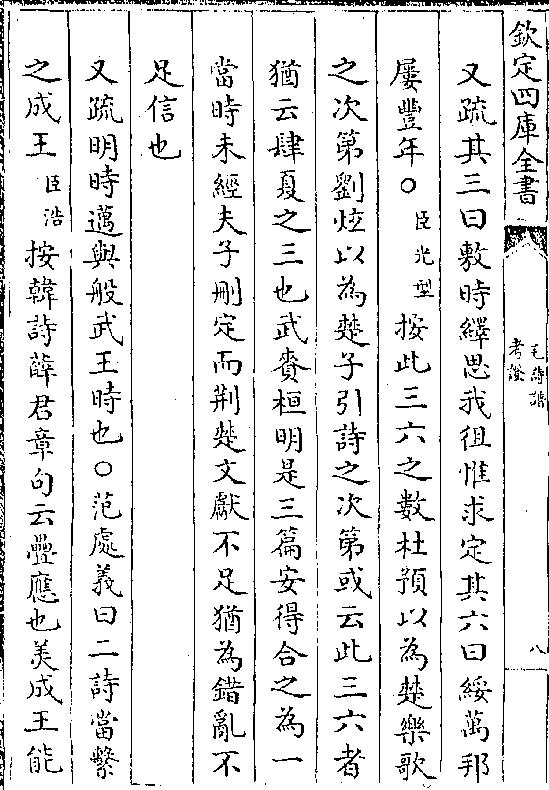 欽定四庫全書
毛詩譜
考證
八
又疏其三曰敷時繹思我徂惟求定其六曰綏萬邦
屢豐年○臣光型按此三六之數杜預以為楚樂歌
之次第劉炫以為楚子引詩之次第或云此三六者
猶云肆夏之三也武賚桓明是三篇安得合之為一
當時未經夫子刪定而荆楚文獻不足猶為錯亂不
足信也
又疏明時邁與般武王時也○范處義曰二詩當繫
之成王臣浩按韓詩薛君章句云疊應也美成王能